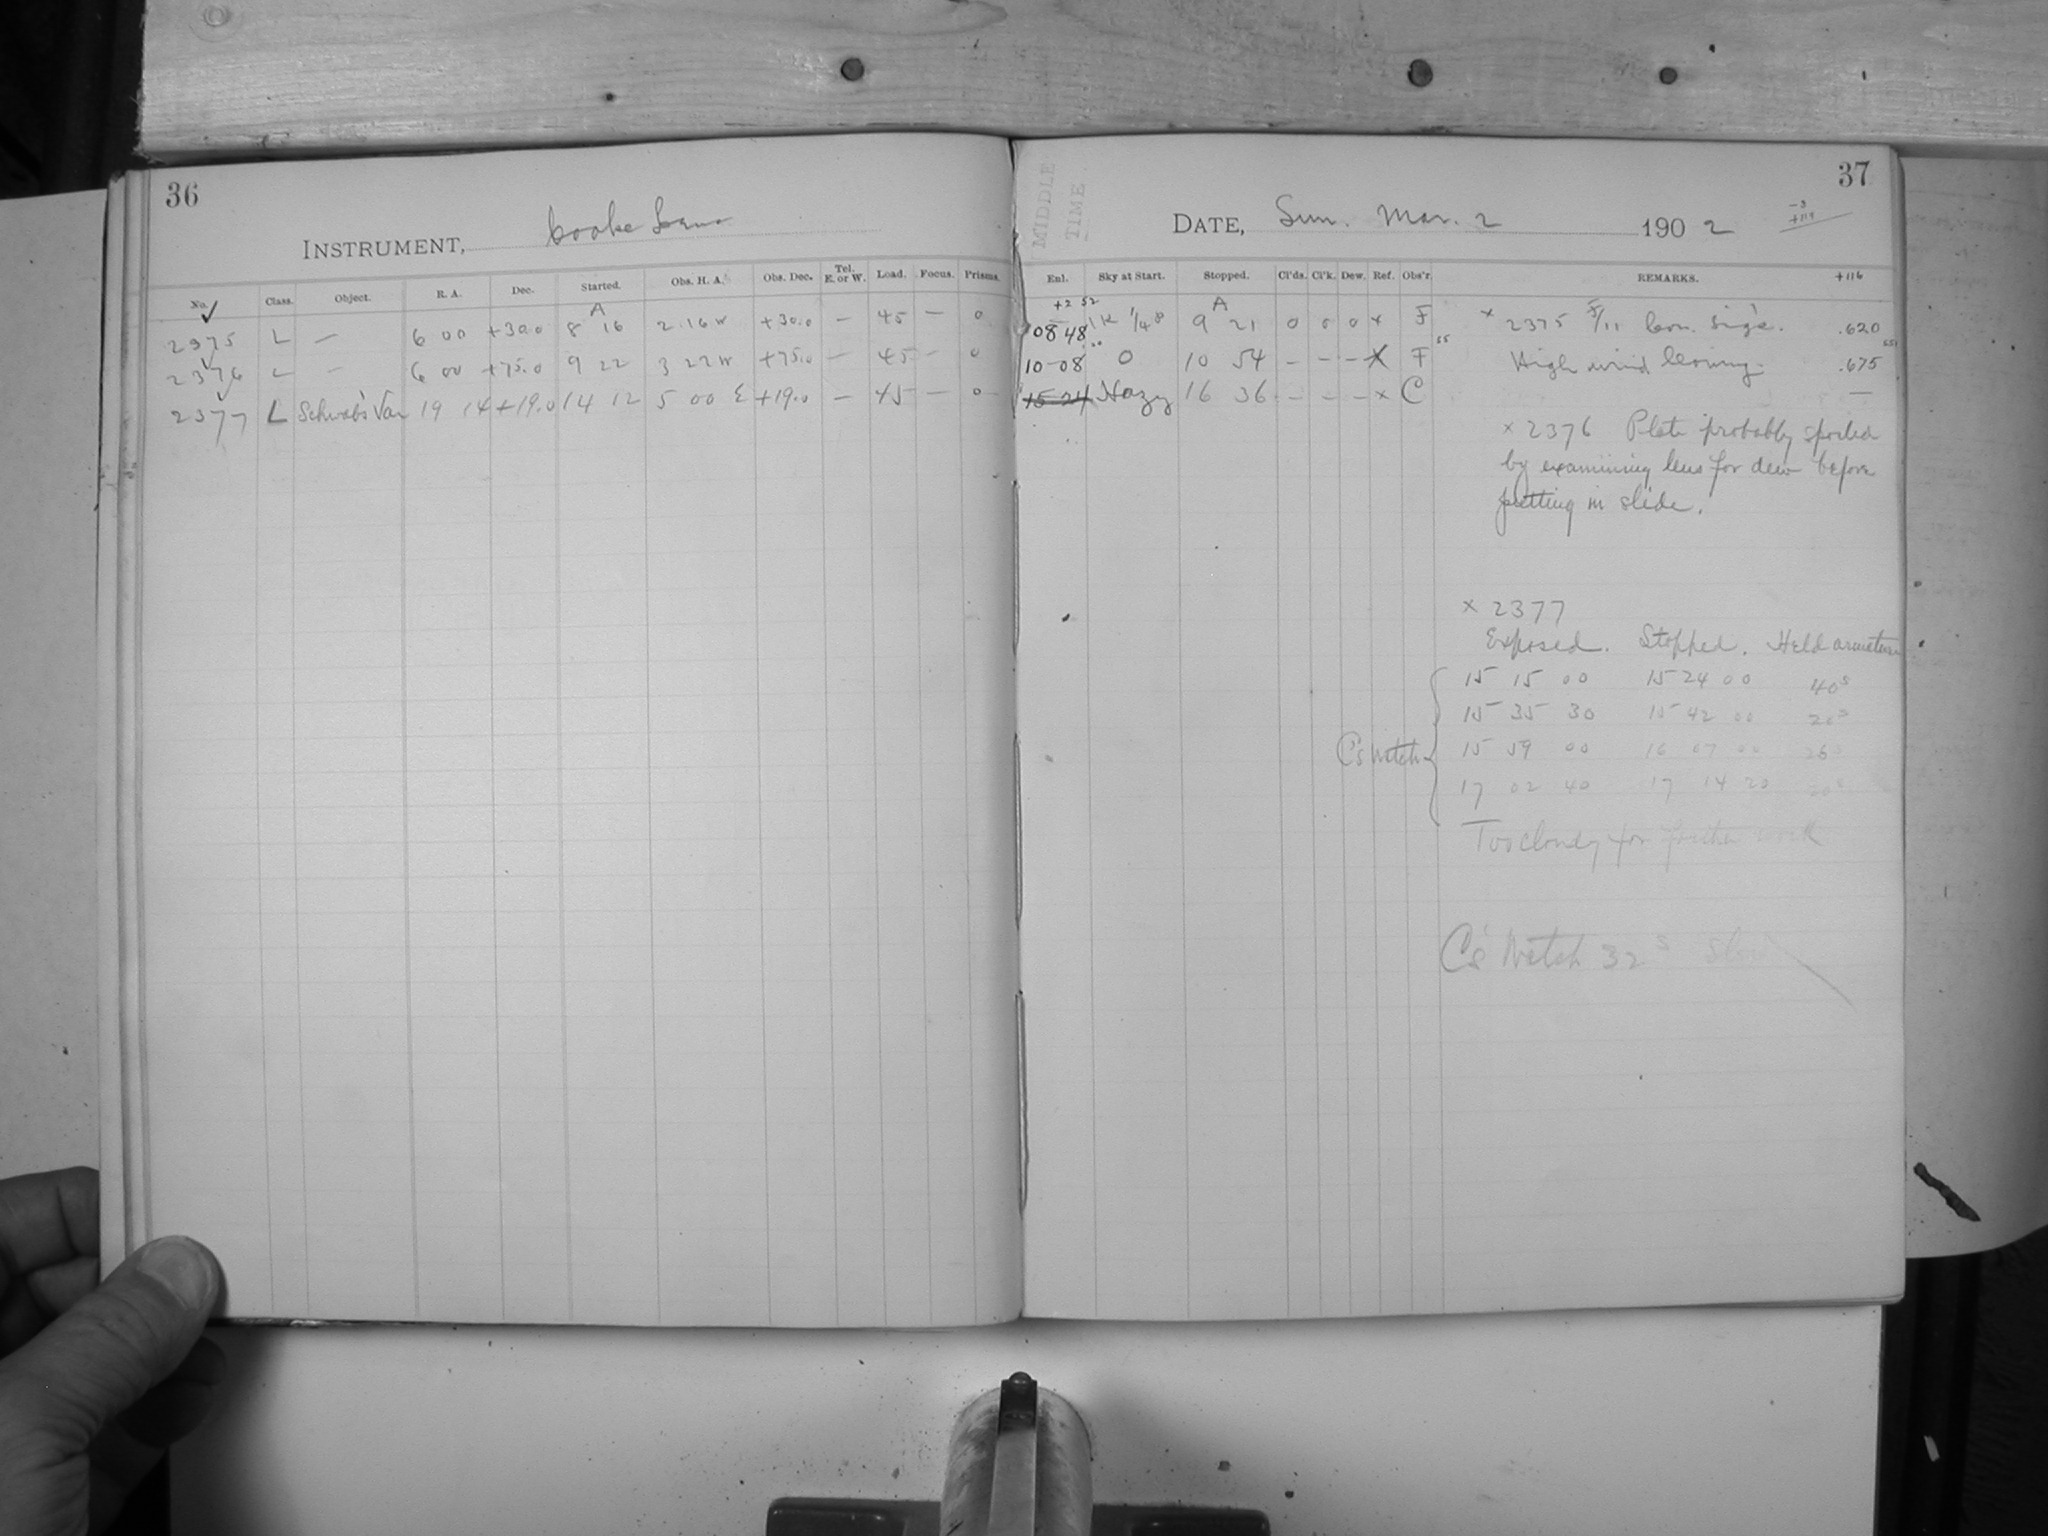 36
INSTRUMENT, Cooke Lens
No. Class. Object. R. A. Dec. Started. Obs. H. A. Obs. Dec. Tel. E. or W. Load. Focus. Prisms.
A
2375 L — 6 00 +30.0 8 16 2 16 W +30.0 — 45 — 0
2376 L — 6 00 +75.0 9 22 3 22 W +75.0 — 45 — 0
2377 L Schwab's Var 19 14 +19.0 14 12 5 00 E +19.0 — 45 — 0
37
MIDDLE TIME
DATE, Sun. Mar. 2 1902
-3
+119
Enl. Sky at Start. Stopped. Cl'ds. Cl'k. Dew. Ref. Obs'r. REMARKS. +116
+2 52 A
08 48 1/4 9 21 0 0 0 x F x 2375 F/11 Con. Sig's. .620
10-08 0 10 54 — — — X F High wind blowing. .675
15-24 Hazy 16 36 — — — x C —
x 2376 Plate probably spoiled
by examining lens for dew before
putting in slide.
x 2377
Exposed. Stopped. Held armature
15 15 00 15 24 00 40s
15 35 30 15 42 00 20s
C's Watch 15 59 00 16 07 00
17 02 40 17 14 20
Too cloudy for further work
C's Watch 32s slow